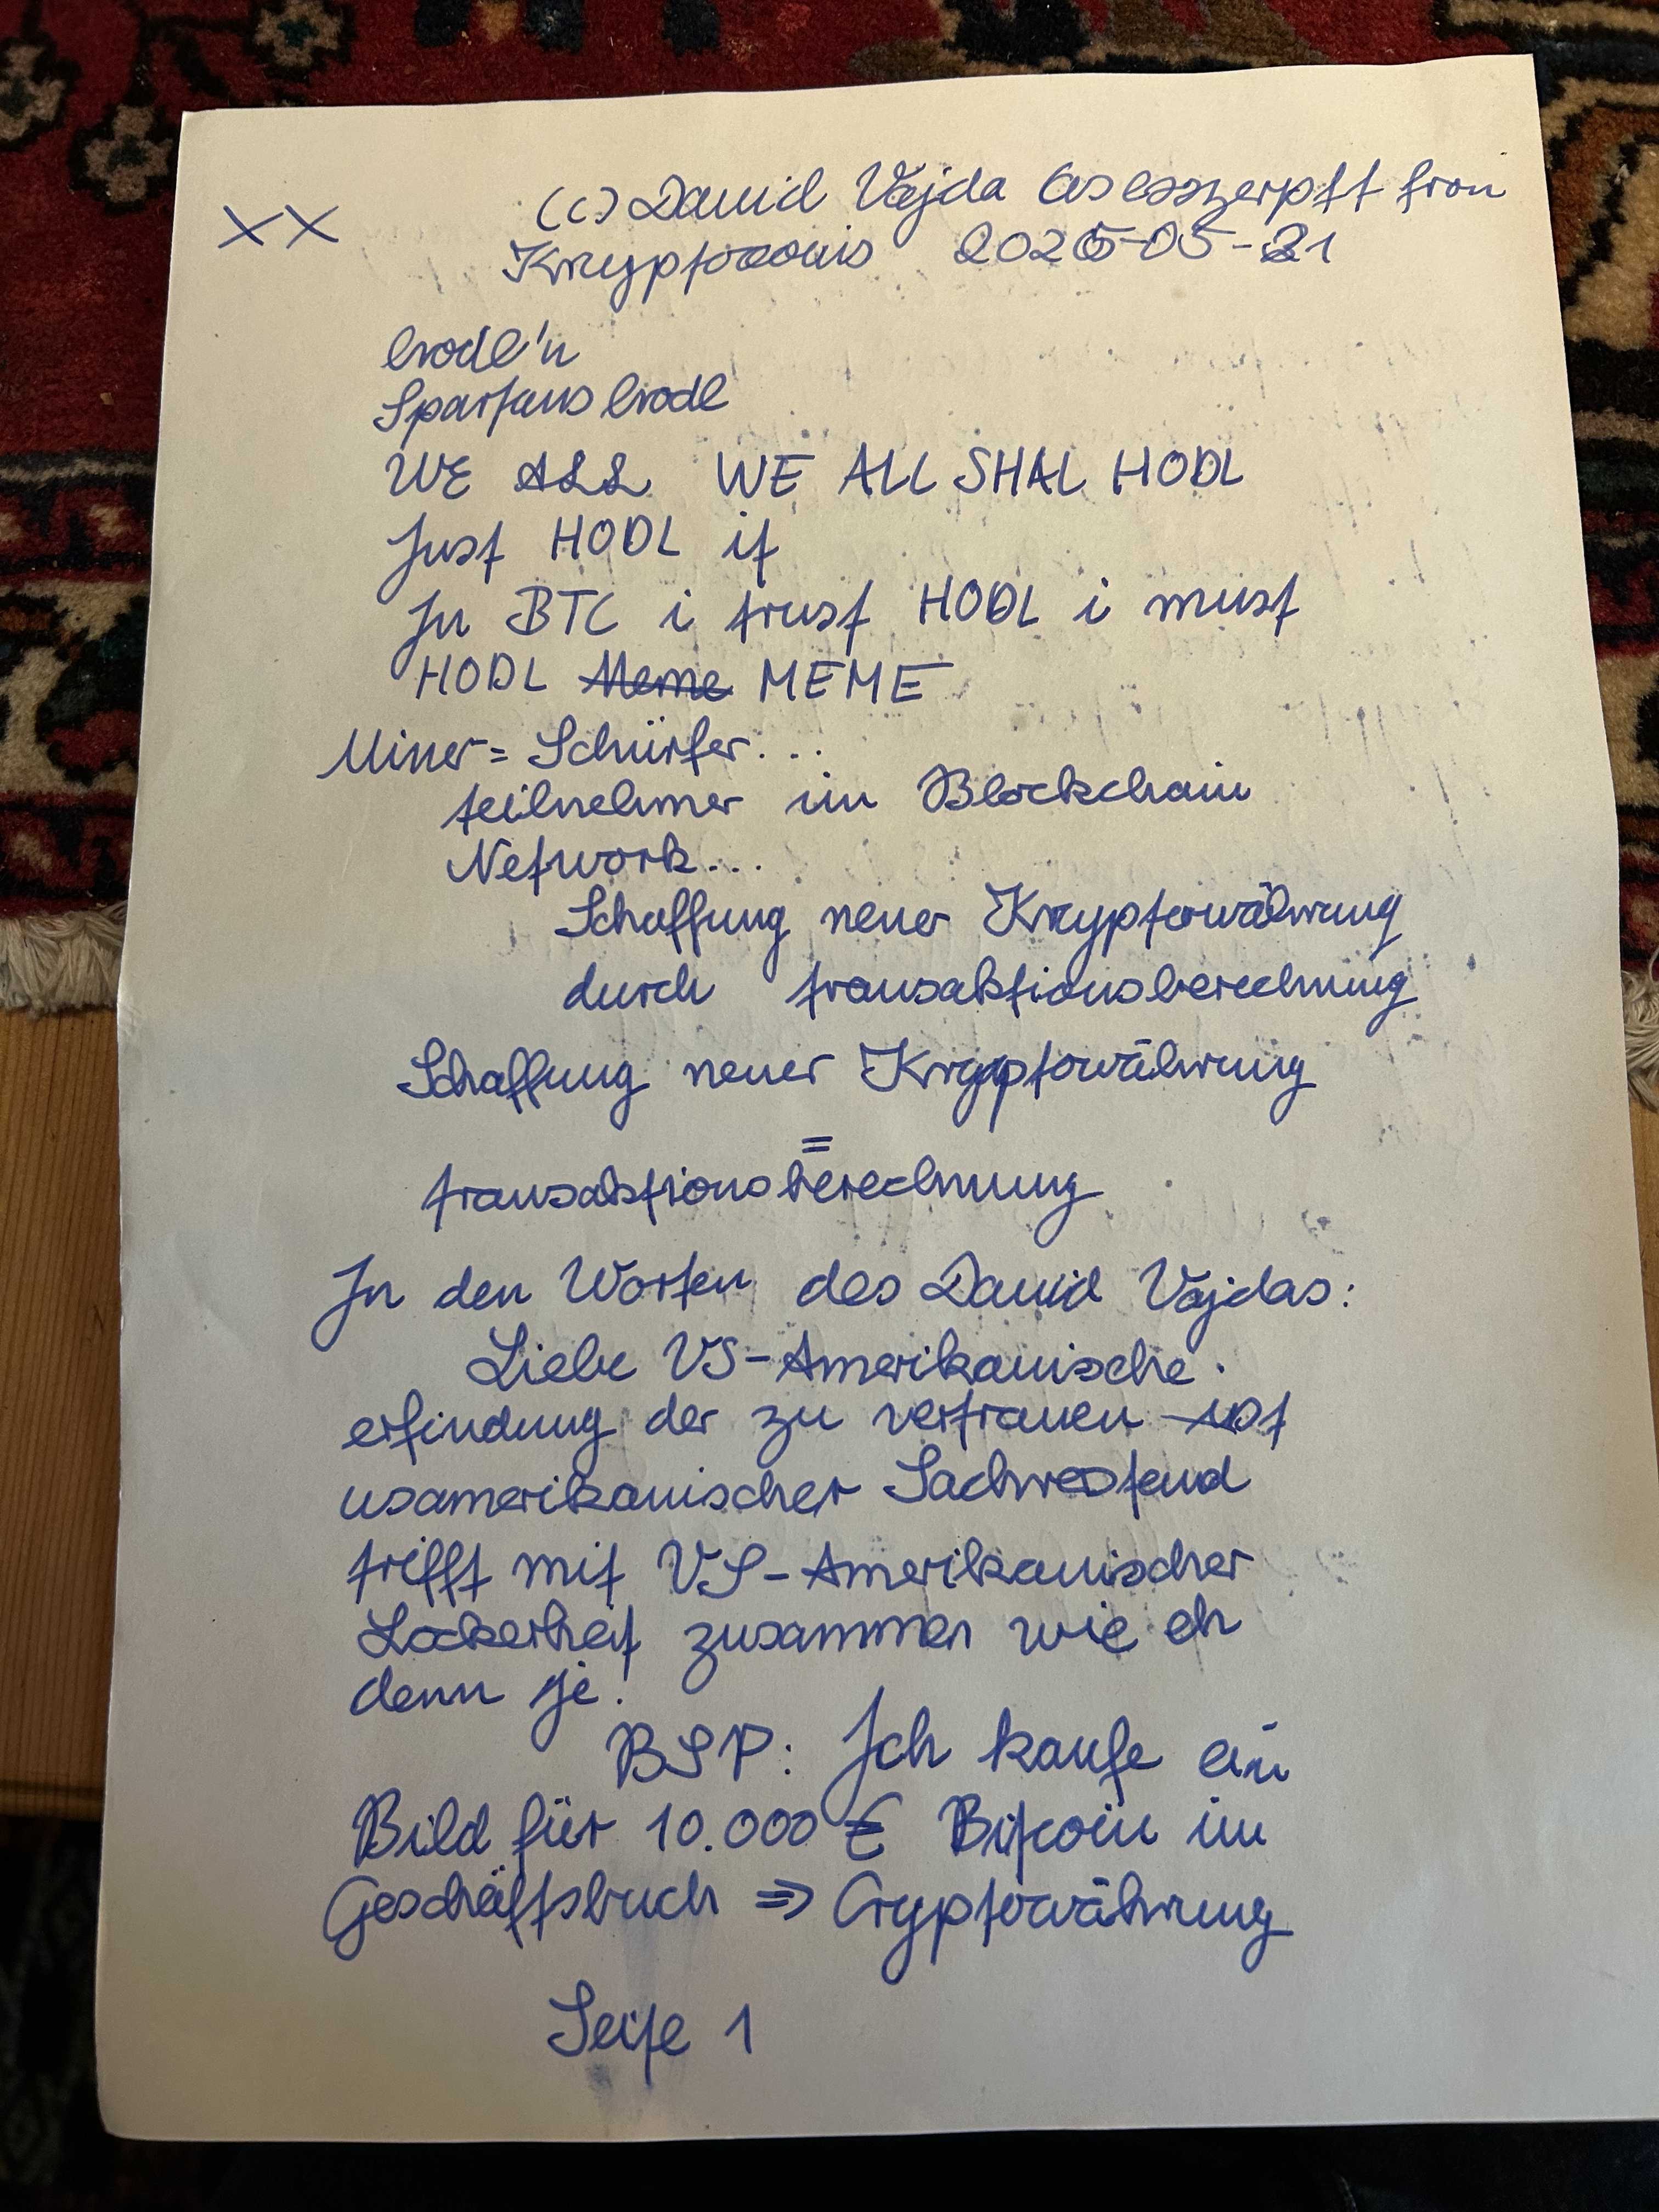 XX
(c) David Vajda as esszerpft from
Kryptooois 2026-05-21
hodl'n
Spartans hodl
WE ALL WE ALL SHAL HODL
Just HODL it
In BTC i trust HODL i must
HODL Meme MEME
Miner = Schürfer...
teilnehmer im Blockchain
Network...
Schaffung neuer Kryptowährung
durch transaktionsberechnung
Schaffung neuer Kryptowährung
=
transaktionsberechnung
In den Worten des David Vajdas:
Liebe US-Amerikanische
erfindung der zu vertrauen ist
usamerikanischer Sachverstand
trifft mit US-Amerikanischer
Lockerheit zusammen wie eh
denn je!
BSP: Ich kaufe ein
Bild für 10.000 € Bitcoin im
Geschäftsbuch ⇒ Cryptowährung
Seite 1